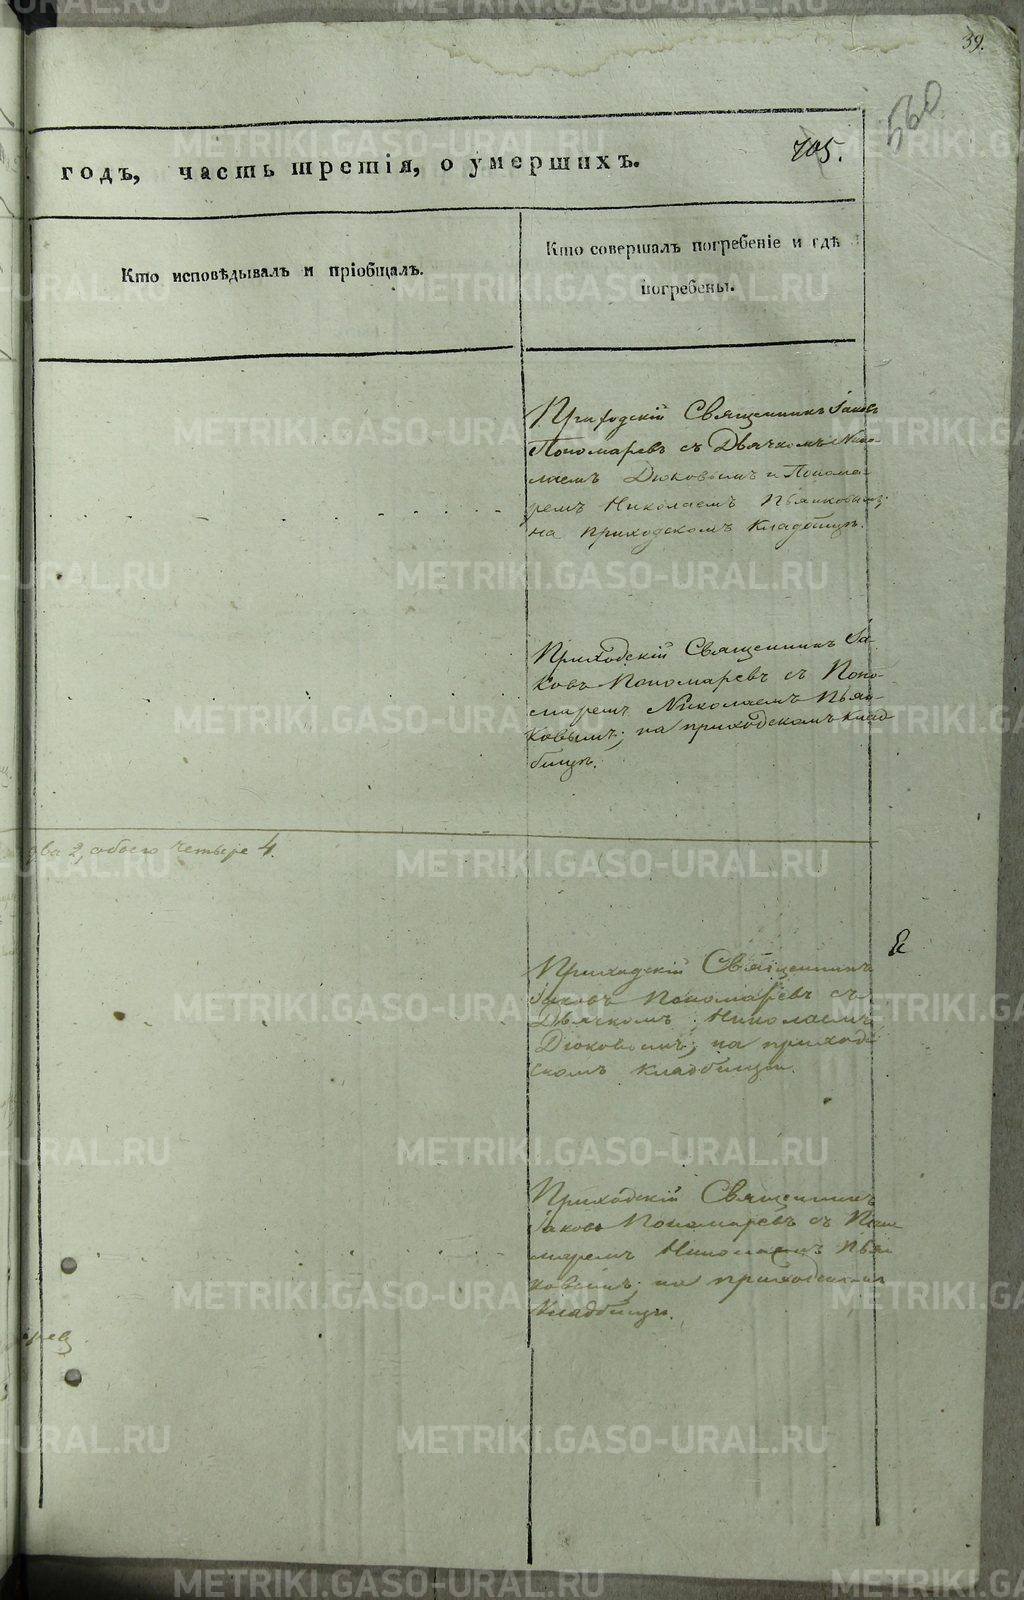 39.
560
705.
годъ, часть третія, о умершихъ.
Кто исповѣдывалъ и пріобщалъ.
Кто совершалъ погребеніе и гдѣ
погребены.
Приходскій Священникъ Іаковъ
Пономаревъ съ Дьячкомъ Нико-
лаемъ Дюковымъ и Понома-
ремъ Николаемъ Пьянковымъ;
на приходскомъ Кладбищѣ.
Приходскій Священникъ Іа-
ковъ Пономаревъ съ Поно-
маремъ Николаемъ Пьян-
ковымъ; на приходскомъ клад
бищѣ.
два 2, обоего четыре 4.
Приходскій Священникъ
Іаковъ Пономаревъ съ
Дьячкомъ Николаемъ
Дюковымъ; на приход
скомъ кладбищѣ.
Приходскій Священникъ
Іаковъ Пономаревъ съ Поно
маремъ Николаемъ Пьян
ковымъ; на приходскомъ
Кладбищѣ.
METRIKI.GASO-URAL.RU